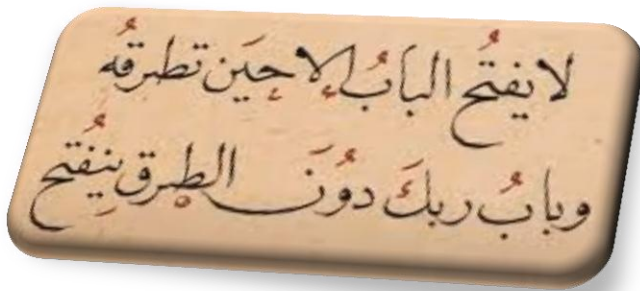 لا يفتحُ البابُ إلا حينَ تطرقهُ
وبابُ ربكَ دونَ الطرقِ ينفتحُ